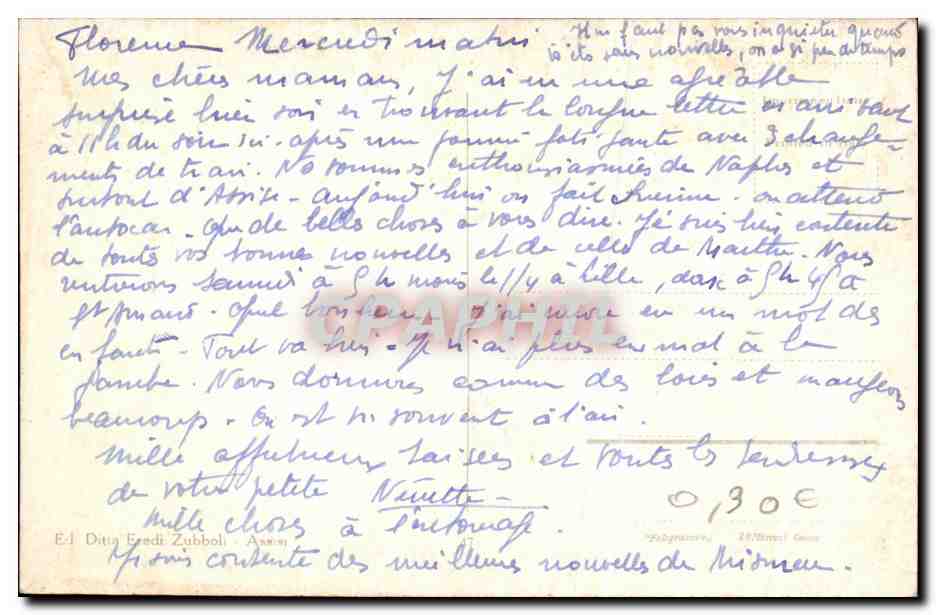 Florence Mercredi matin
Il ne faut pas vous inquiéter quand
ici êtes sans nouvelles, on a si peu de temps
Mes chères mamans, J'ai eu une agréable
surprise hier soir en trouvant la longue lettre en arrivant
à 11h du soir ici - après une journée fatigante avec 3 change-
ments de train. Ns sommes enthousiasmées de Naples et
surtout d'Assise - aujourd'hui on fait Sienne - on attend
l'autocar - Que de belles choses à vous dire. Je suis bien contente
de toutes vos bonnes nouvelles et de celles de Marthe. Nous
rentrerons samedi à 5h moins le 1/4 à Lille, donc à 5h 45 à
St Amand. Quel bonheur - J'ai encore eu un mot des
enfants - Tout va bien - Je n'ai plus eu mal à la
jambe. Nous dormons comme des loirs et mangeons
beaucoup - On est si souvent à l'air.
Mille affectueux baisers et toutes les tendresses
de votre petite Nénette -
Mille choses à l'entourage.
Je suis contente des meilleures nouvelles de
0,30€
Ed Ditta Eredi Zubboli - Assisi
47
CPAPHIL